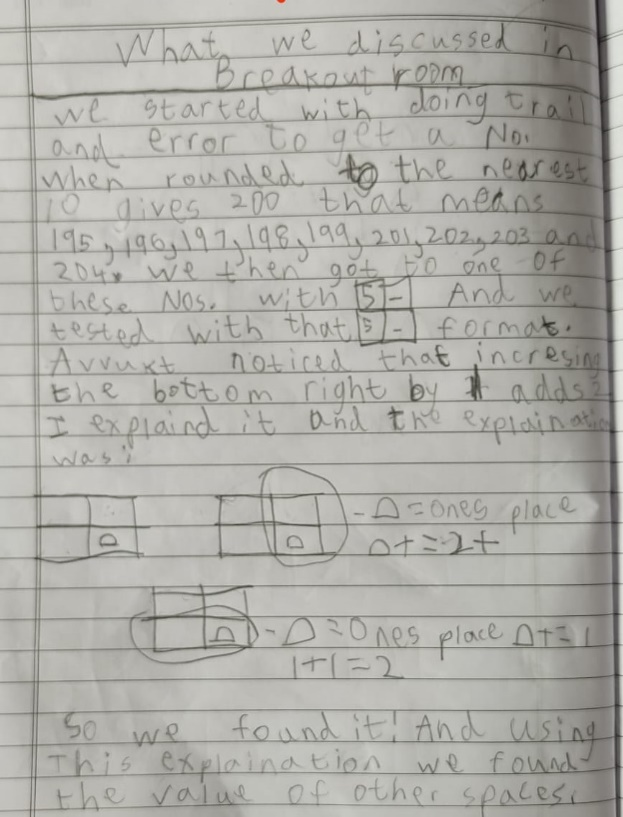 What we discussed in
Breakout room
we started with doing trail
and error to get a No.
when rounded to the nearest
10 gives 200 that means
195, 196, 197, 198, 199, 201, 202, 203 and
204. we then got to one of
these Nos. with 5 - And we
tested with that 5 - format.
Avvukt noticed that incresing
the bottom right by 1 adds 2
I explaind it and the explaination
was:
- △ = ones place
△+ = 2+
- △ = Ones place △+ = 1
1+1=2
So we found it! And using
This explaination we found
the value of other spaces.